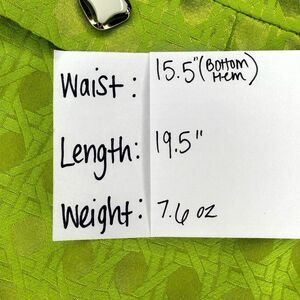 Waist: 15.5" (Bottom Hem)
Length: 19.5"
Weight: 7.6 oz